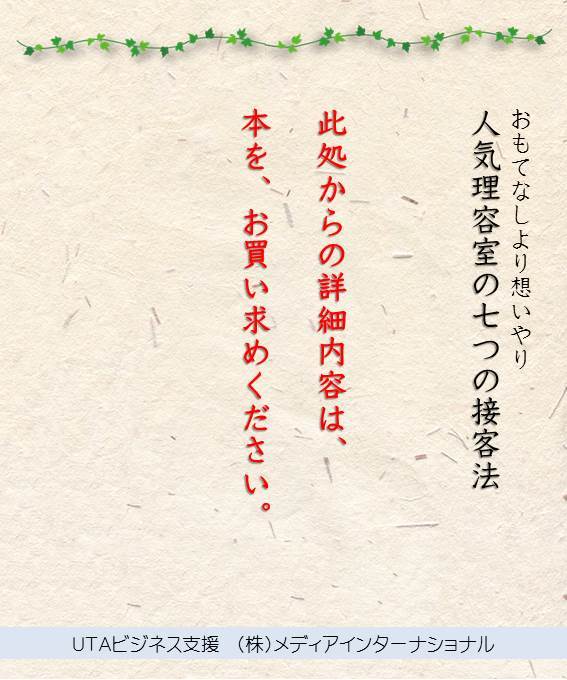 おもてなしより想いやり
人気理容室の七つの接客法
此処からの詳細内容は、
本を、お買い求めください。
UTAビジネス支援　(株)メディアインターナショナル